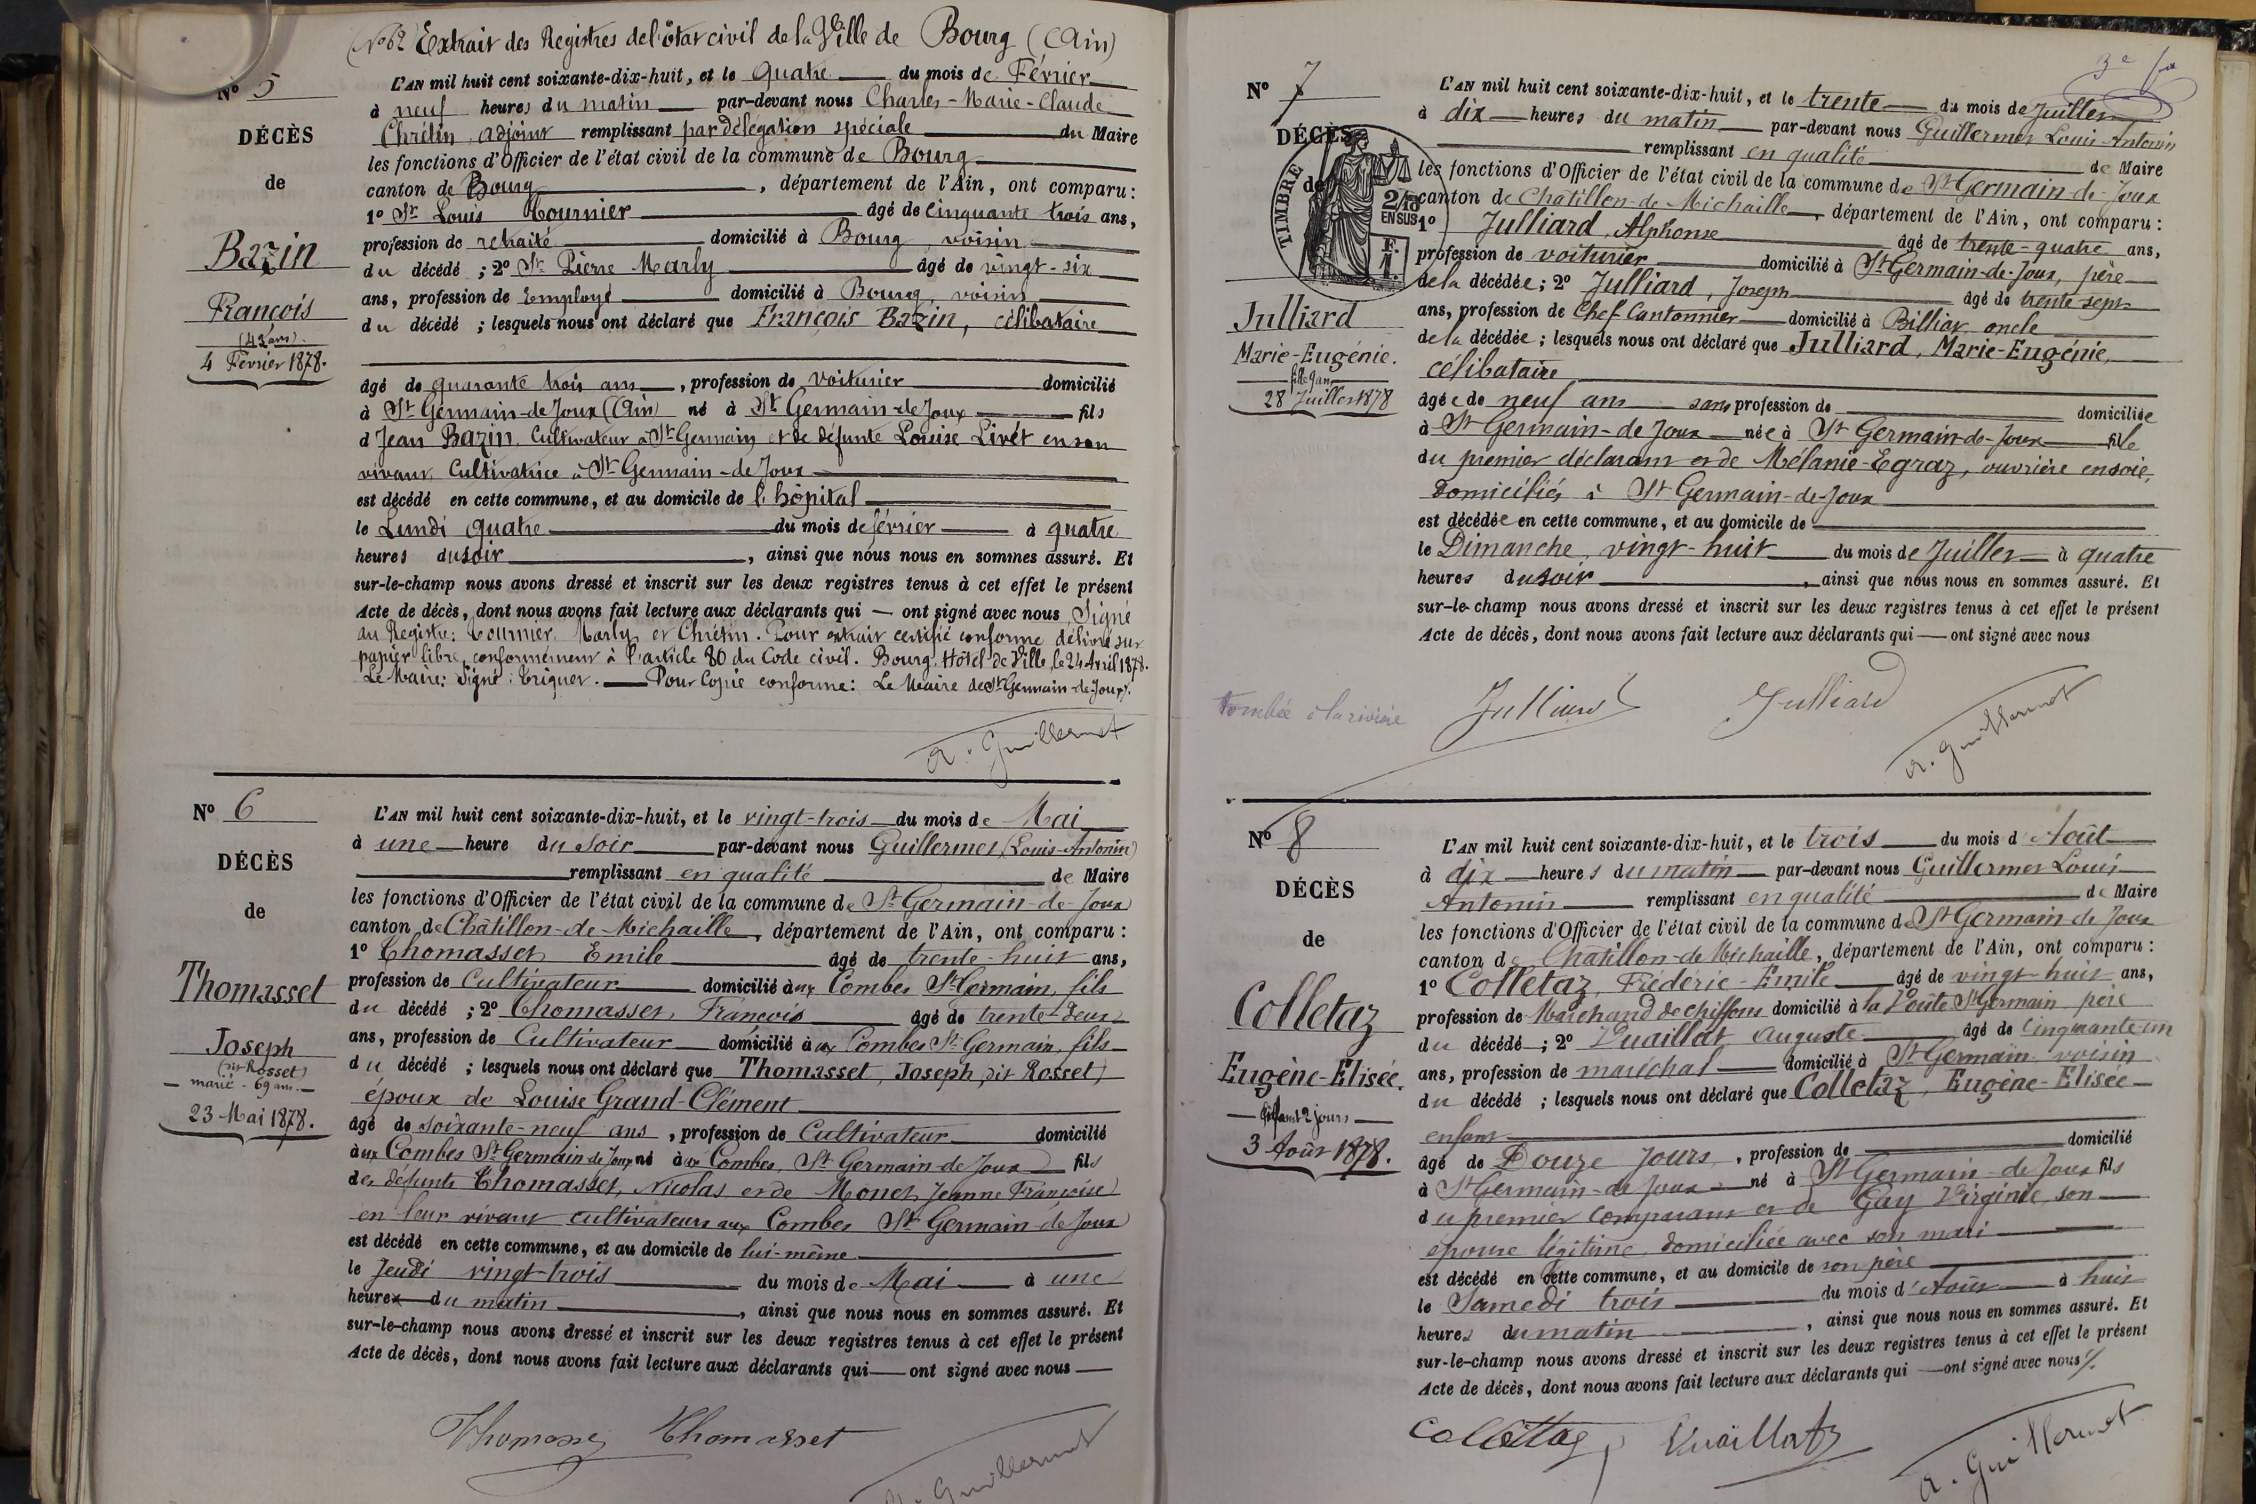 (No 62) Extrait des Registres de l'état civil de la Ville de Bourg (Ain)
No 5
DÉCÈS
de
Bazin
François
(43 ans)
4 Février 1878.
L'AN mil huit cent soixante-dix-huit, et le quatre du mois de Février
à neuf heures du matin par-devant nous Charles-Marie-Claude
Chrétin adjoint remplissant par délégation spéciale du Maire
les fonctions d'Officier de l'état civil de la commune de Bourg
canton de Bourg, département de l'Ain, ont comparu:
1º Sr Louis Tournier âgé de cinquante trois ans,
profession de retraité domicilié à Bourg, voisin
du décédé; 2º Sr Pierre Marly âgé de vingt-six
ans, profession de Employé domicilié à Bourg, voisin
du décédé; lesquels nous ont déclaré que François Bazin, célibataire
âgé de quarante trois ans, profession de voiturier domicilié
à St Germain-de-Joux (Ain) né à St Germain-de-Joux fils
d Jean Bazin, Cultivateur à St Germain et de défunte Louise Livet en son
vivant Cultivatrice à St Germain-de-Joux
est décédé en cette commune, et au domicile de l'hôpital
le Lundi quatre du mois de février à quatre
heures du soir, ainsi que nous nous en sommes assuré. Et
sur-le-champ nous avons dressé et inscrit sur les deux registres tenus à cet effet le présent
Acte de décès, dont nous avons fait lecture aux déclarants qui — ont signé avec nous Signé
au Registre: Tournier, Marly et Chrétin. Pour extrait certifié conforme délivré sur
papier libre, conformément à l'article 80 du Code civil. Bourg, Hôtel de Ville, le 24 Avril 1878.
Le Maire: Signé: Triquet. — Pour Copie conforme: Le Maire de St Germain-de-Joux
A. Guillermet
No 6
DÉCÈS
de
Thomasset
Joseph
(dit Rosset)
marié - 69 ans.
23 Mai 1878.
L'AN mil huit cent soixante-dix-huit, et le vingt-trois du mois de Mai
à une heure du soir par-devant nous Guillermet (Louis-Antonin)
remplissant en qualité de Maire
les fonctions d'Officier de l'état civil de la commune de St Germain-de-Joux
canton de Châtillon-de-Michaille, département de l'Ain, ont comparu:
1º Thomasset Emile âgé de trente-huit ans,
profession de Cultivateur domicilié aux Combes St Germain, fils
du décédé; 2º Thomasset, François âgé de trente-deux
ans, profession de Cultivateur domicilié aux Combes St Germain, fils
du décédé; lesquels nous ont déclaré que Thomasset, Joseph, dit Rosset
époux de Louise Grand-Clément
âgé de soixante-neuf ans, profession de Cultivateur domicilié
aux Combes St Germain de Joux né aux Combes, St Germain de Joux fils
des défunts Thomasset, Nicolas et de Monet, Jeanne Françoise
en leur vivant cultivateurs aux Combes St Germain-de-Joux
est décédé en cette commune, et au domicile de lui-même
le Jeudi vingt-trois du mois de Mai à une
heure du matin, ainsi que nous nous en sommes assuré. Et
sur-le-champ nous avons dressé et inscrit sur les deux registres tenus à cet effet le présent
Acte de décès, dont nous avons fait lecture aux déclarants qui — ont signé avec nous
Thomasset Thomasset
A. Guillermet
3e
No 7
DÉCÈS
de
TIMBRE
2/10
EN SUS
F.
1.
Julliard
Marie-Eugénie.
fille 9 ans
28 Juillet 1878
L'AN mil huit cent soixante-dix-huit, et le trente du mois de Juillet
à dix heures du matin par-devant nous Guillermet Louis-Antonin
remplissant en qualité de Maire
les fonctions d'Officier de l'état civil de la commune de St Germain-de-Joux
canton de Châtillon-de-Michaille, département de l'Ain, ont comparu:
1º Julliard, Alphonse âgé de trente-quatre ans,
profession de voiturier domicilié à St Germain-de-Joux, père
de la décédée; 2º Julliard, Joseph âgé de trente sept
ans, profession de Chef Cantonnier domicilié à Billiat, oncle
de la décédée; lesquels nous ont déclaré que Julliard, Marie-Eugénie,
célibataire
âgée de neuf ans sans profession de domiciliée
à St Germain-de Joux née à St Germain-de-Joux fille
du premier déclarant et de Mélanie-Egraz, ouvrière en soie,
domiciliés à St Germain-de-Joux
est décédée en cette commune, et au domicile de
le Dimanche, vingt-huit du mois de Juillet à quatre
heures du soir, ainsi que nous nous en sommes assuré. Et
sur-le-champ nous avons dressé et inscrit sur les deux registres tenus à cet effet le présent
Acte de décès, dont nous avons fait lecture aux déclarants qui — ont signé avec nous
tombée à la rivière
Julliard Julliard
A. Guillermet
No 8
DÉCÈS
de
Colletaz
Eugène-Elisée.
enfant 12 jours
3 Août 1878.
L'AN mil huit cent soixante-dix-huit, et le trois du mois d'Août
à dix heures du matin par-devant nous Guillermet Louis
Antonin remplissant en qualité de Maire
les fonctions d'Officier de l'état civil de la commune de St Germain de Joux
canton de Châtillon-de-Michaille, département de l'Ain, ont comparu:
1º Colletaz, Frédéric-Emile âgé de vingt-huit ans,
profession de Marchand de chiffons domicilié à la Voûte St Germain père
du décédé; 2º Vuaillat Auguste âgé de Cinquante-un
ans, profession de maréchal domicilié à St Germain voisin
du décédé; lesquels nous ont déclaré que Colletaz, Eugène-Elisée
enfant
âgé de Douze Jours, profession de domicilié
à St Germain-de Joux né à St Germain-de Joux fils
du premier Comparant et de Gay Virginie, son
épouse légitime, domiciliée avec son mari
est décédé en cette commune, et au domicile de son père
le Samedi trois du mois d'Août à huit
heures du matin, ainsi que nous nous en sommes assuré. Et
sur-le-champ nous avons dressé et inscrit sur les deux registres tenus à cet effet le présent
Acte de décès, dont nous avons fait lecture aux déclarants qui — ont signé avec nous
Collettaz Vuaillat
A. Guillermet